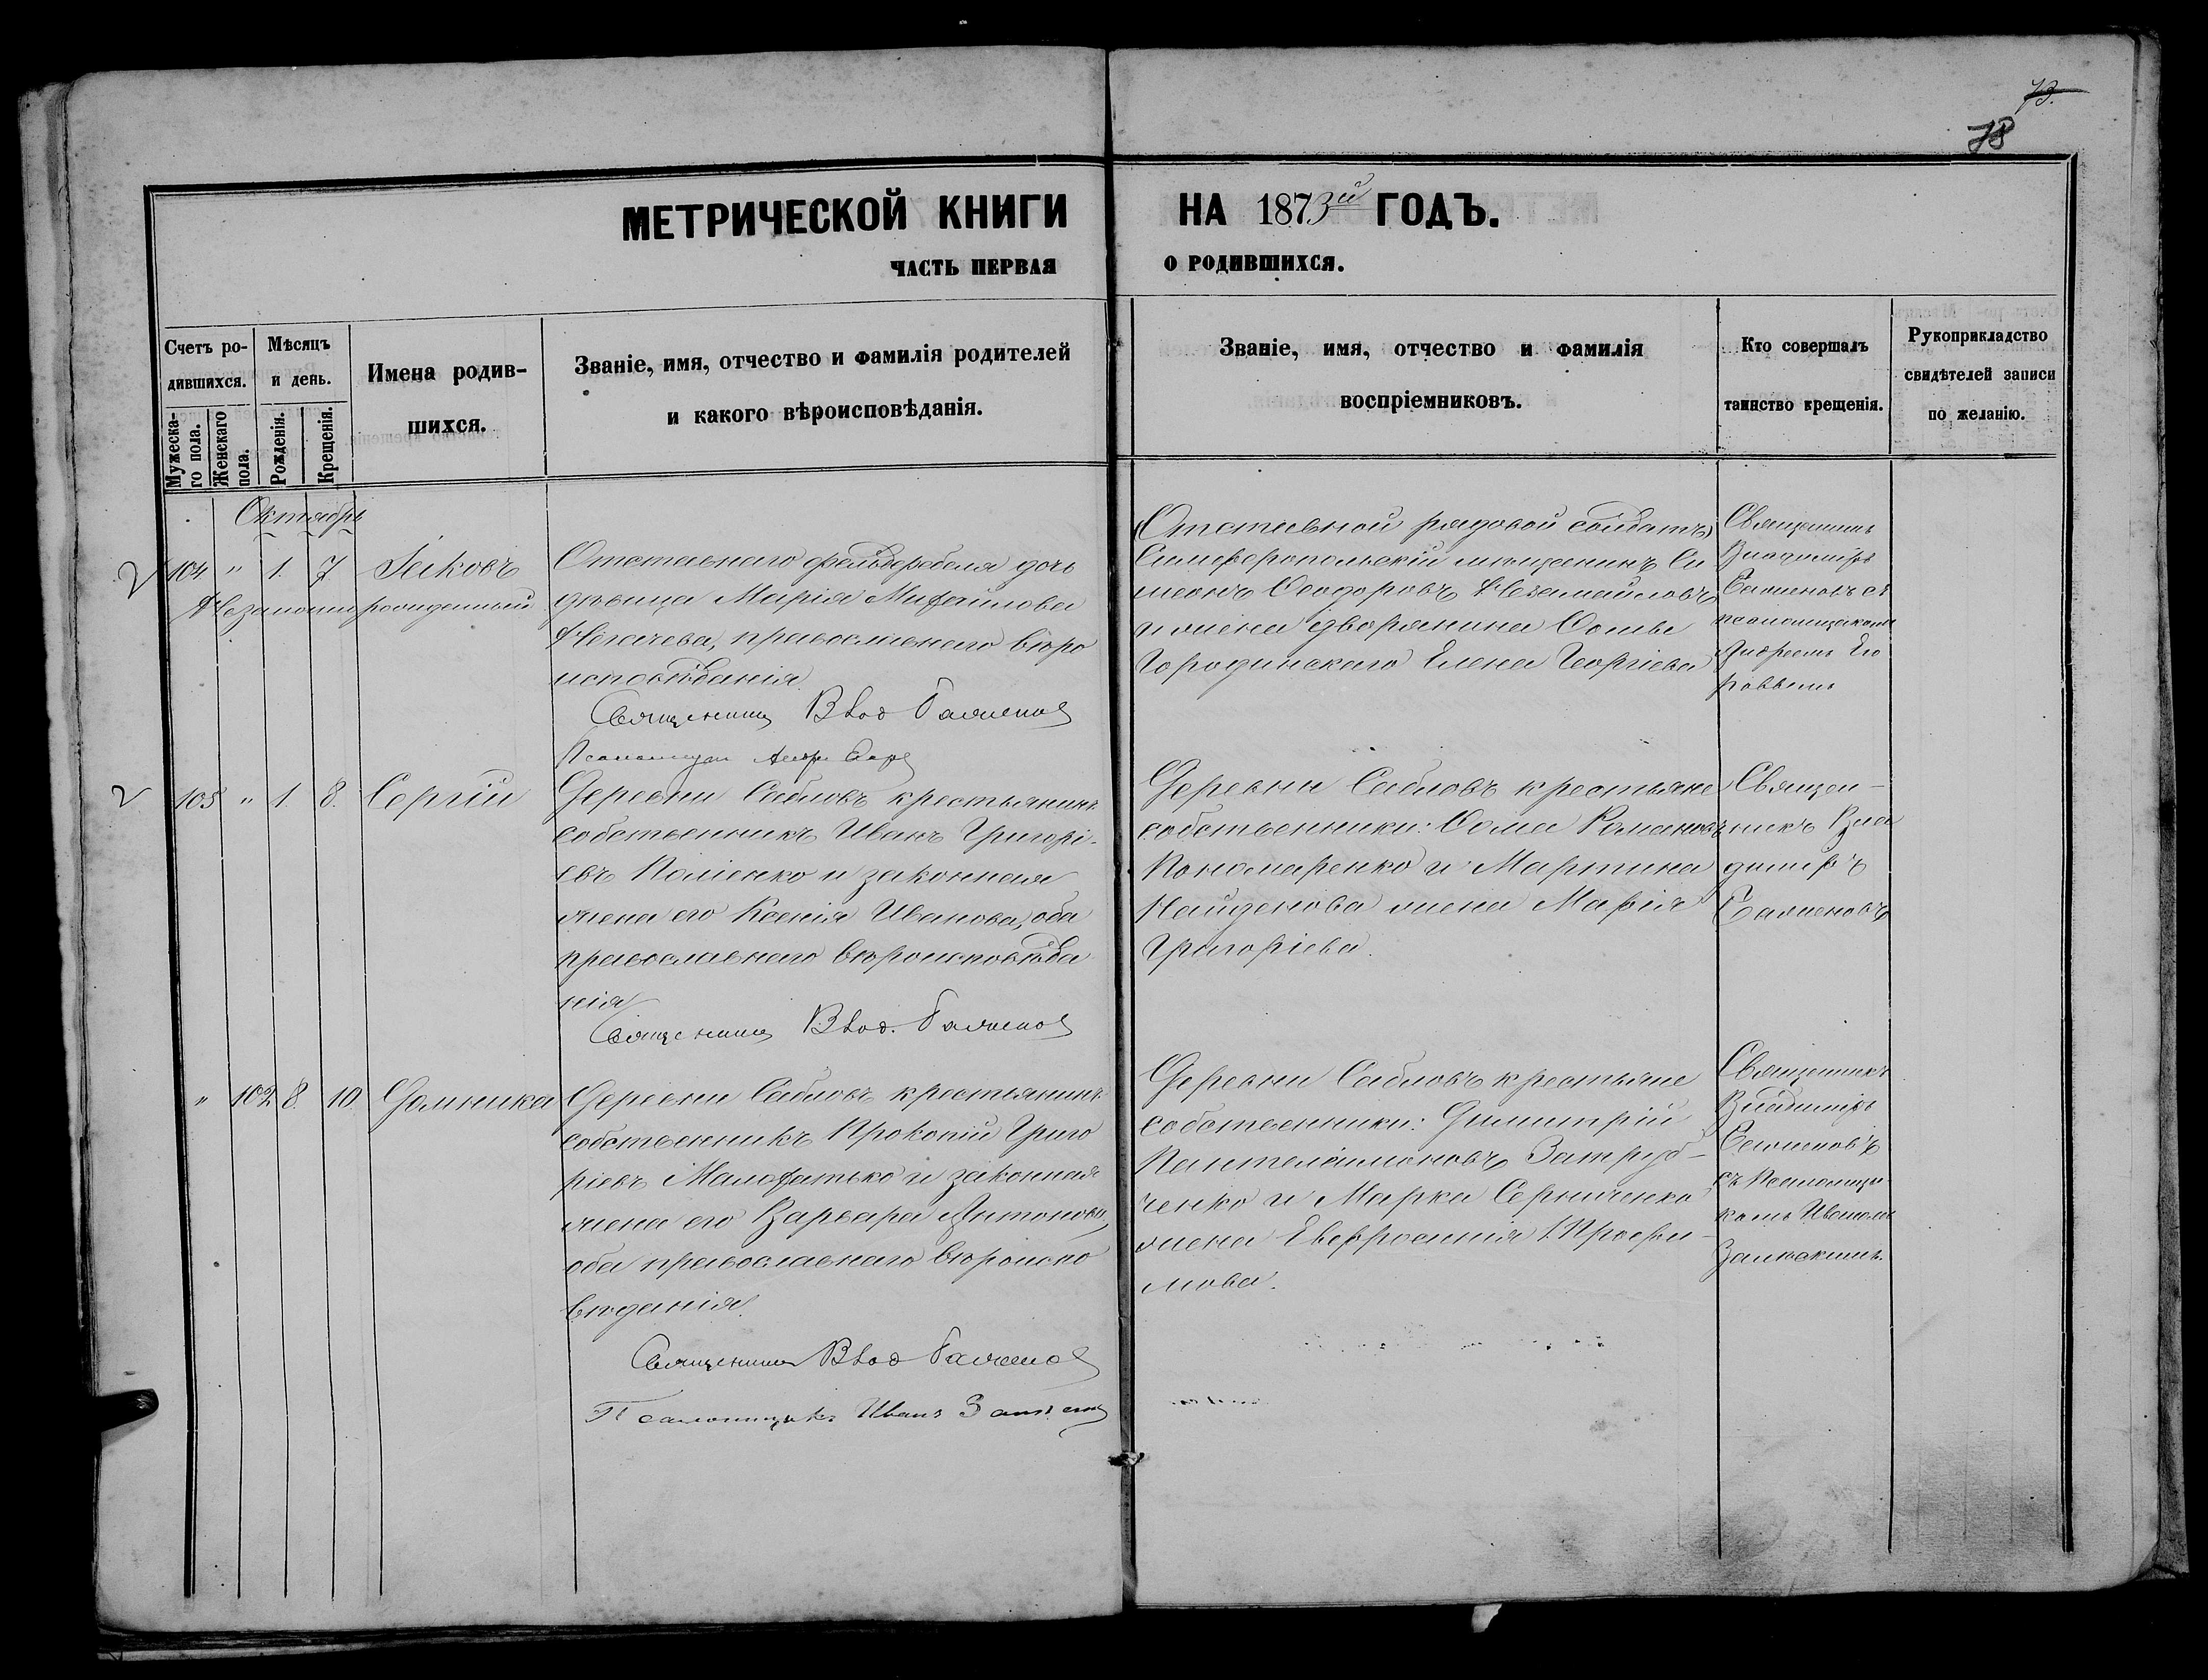 73.
78
МЕТРИЧЕСКОЙ КНИГИ НА 1873й ГОДЪ.
ЧАСТЬ ПЕРВАЯ О РОДИВШИХСЯ.
Счетъ ро-
дившихся.
Мужеска-
го пола.
Женскаго
пола.
Мѣсяцъ
и день.
Рожденія.
Крещенія.
Имена родив-
шихся.
Званіе, имя, отчество и фамилія родителей
и какого вѣроисповѣданія.
Званіе, имя, отчество и фамилія
воспріемниковъ.
Кто совершалъ
таинство крещенія.
Рукоприкладство
свидѣтелей записи
по желанію.
Октябрь
104 " 1. 7 Іаковъ
Незаконнорожденный
Отставнаго фельдфебеля дочь
дѣвица Марія Михайлова
православнаго вѣро
исповѣданія
Священникъ Влад Баженов
Отставной рядовой солдатъ,
Симферопольскій мѣщанинъ Си
меонъ Ѳеодоровъ Незамайловъ
и жена дворянина Ѳомы
Городинскаго Елена Георгіева
Священникъ
Владиміръ
Баженовъ съ
псаломщикомъ
Андреемъ Его
ровымъ
105 " 1. 8. Сергій
Деревни Сабловъ крестьянинъ
собственникъ Иванъ Григорі-
евъ и законная
жена его Ксенія Иванова, оба
православнаго вѣроисповѣда
нія
Священникъ Влад. Баженов
Деревни Сабловъ крестьяне
собственники: Ѳома Романовъ
Пономаренко и Мартина
Найденова жена Марія
Григоріева.
Священ-
никъ Вла
диміръ
Баженовъ
" 102 8. 10. Домника
Деревни Сабловъ крестьянинъ
собственникъ Прокопій Григо
ріевъ и законная
жена его Варвара Антонова,
оба православнаго вѣроиспо
вѣданія.
Священникъ Влад Баженов
Псаломщикъ Иванъ
Деревни Сабловъ крестьяне
собственники: Димитрій
Пантелеимоновъ Затруд-
ченко и Марка Серниченко
жена Евфросинія Трофи-
мова.
Священникъ
Владиміръ
Баженовъ
съ Псаломщи-
комъ Иваномъ